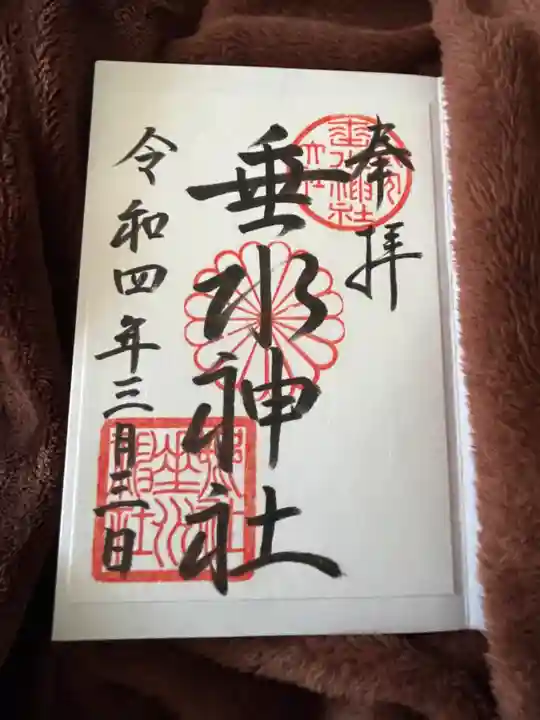 奉拝
垂水神社
令和四年三月三日